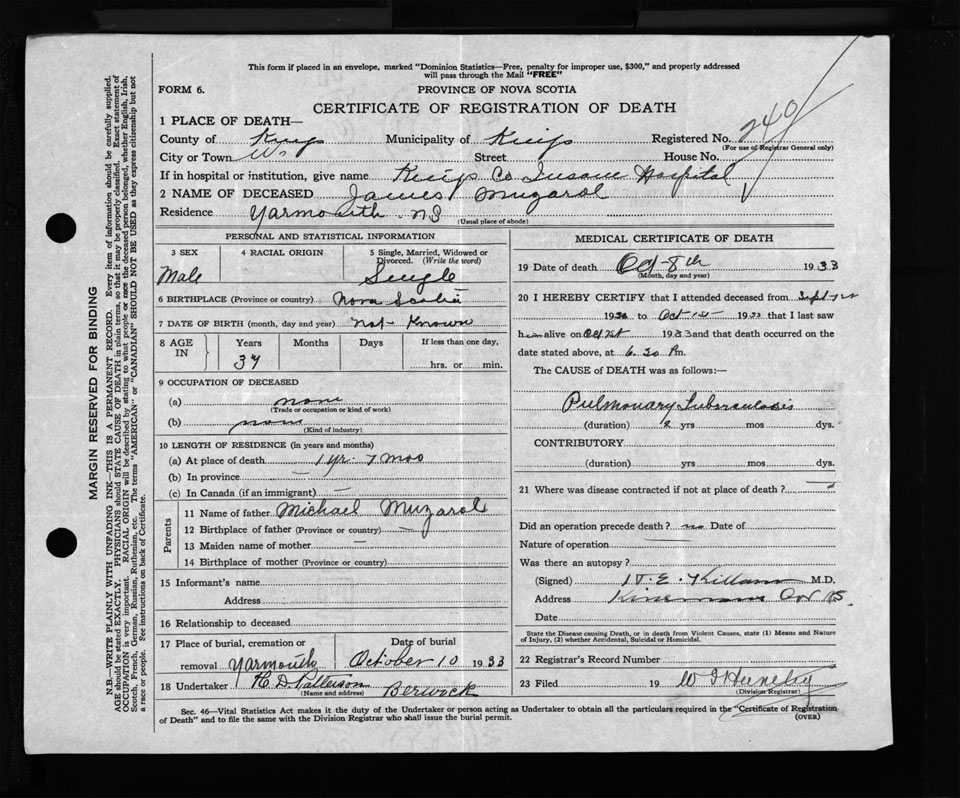 This form if placed in an envelope, marked "Dominion Statistics—Free, penalty for improper use, $300," and properly addressed
will pass through the Mail "FREE"
FORM 6.
PROVINCE OF NOVA SCOTIA
CERTIFICATE OF REGISTRATION OF DEATH
1 PLACE OF DEATH—
County of Kings Municipality of Kings Registered No. 240
(For use of Registrar General only)
City or Town Street House No.
If in hospital or institution, give name Kings Co Insane Hospital
2 NAME OF DECEASED James Muzarol
Residence Yarmouth NS
(Usual place of abode)
PERSONAL AND STATISTICAL INFORMATION
3 SEX 4 RACIAL ORIGIN 5 Single, Married, Widowed or Divorced. (Write the word)
Male Single
6 BIRTHPLACE (Province or country) Nova Scotia
7 DATE OF BIRTH (month, day and year) Not Known
8 AGE IN Years Months Days If less than one day,
37 hrs. or min.
9 OCCUPATION OF DECEASED
(a) none
(Trade or occupation or kind of work)
(b) none
(Kind of industry)
10 LENGTH OF RESIDENCE (in years and months)
(a) At place of death 1 yr. 7 mos
(b) In province —
(c) In Canada (if an immigrant) —
Parents
11 Name of father Michael Muzarol
12 Birthplace of father (Province or country) —
13 Maiden name of mother —
14 Birthplace of mother (Province or country)
15 Informant's name
Address
16 Relationship to deceased
17 Place of burial, cremation or removal Yarmouth
Date of burial
October 10 1933
18 Undertaker H. D. Patterson Berwick
(Name and address)
MEDICAL CERTIFICATE OF DEATH
19 Date of death Oct 8th 1933
(Month, day and year)
20 I HEREBY CERTIFY that I attended deceased from Sept
19 to Oct 1st 1933 that I last saw
him alive on Oct 1st 1933 and that death occurred on the
date stated above, at 6.20 Pm.
The CAUSE of DEATH was as follows:—
Pulmonary Tuberculosis
(duration) 2 yrs mos dys.
CONTRIBUTORY
(duration) yrs mos dys.
21 Where was disease contracted if not at place of death? —
Did an operation precede death? no Date of
Nature of operation —
Was there an autopsy?
(Signed) E. Killam M.D.
Address NS.
Date
State the Disease causing Death, or in death from Violent Causes, state (1) Means and Nature
of Injury, (2) whether Accidental, Suicidal or Homicidal.
22 Registrar's Record Number
23 Filed 19
(Division Registrar)
Sec. 46—Vital Statistics Act makes it the duty of the Undertaker or person acting as Undertaker to obtain all the particulars required in the "Certificate of Registration
of Death" and to file the same with the Division Registrar who shall issue the burial permit.
(OVER)
MARGIN RESERVED FOR BINDING
N.B.—WRITE PLAINLY WITH UNFADING INK—THIS IS A PERMANENT RECORD. Every item of information should be carefully supplied.
AGE should be stated EXACTLY. PHYSICIANS should STATE CAUSE OF DEATH in plain terms, so that it may be properly classified. Exact statement of
OCCUPATION is very important. RACIAL ORIGIN will be described by stating to what people or race the deceased person belonged, whether English, Irish,
Scotch, French, German, Russian, Ruthenian, etc. The terms "AMERICAN" or "CANADIAN" SHOULD NOT BE USED as they express citizenship but not
a race or people. See instructions on back of Certificate.